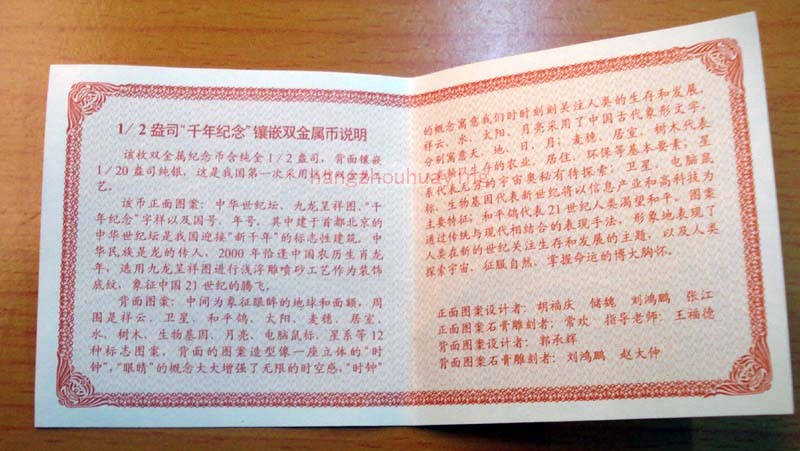 1/2盎司“千年纪念”镶嵌双金属币说明
该枚双金属纪念币含纯金1/2盎司，背面镶嵌
1/20盎司纯银，这是我国第一次采用镶嵌双金属工
艺。
该币正面图案：中华世纪坛、九龙呈祥图、“千
年纪念”字样以及国号、年号。其中建于首都北京的
中华世纪坛是我国迎接“新千年”的标志性建筑。中
华民族是龙的传人，2000年恰逢中国农历生肖龙
年，选用九龙呈祥图进行浅浮雕喷砂工艺作为装饰
底纹，象征中国21世纪的腾飞。
背面图案：中间为象征眼眸的地球和面额，周
围是祥云、卫星、和平鸽、太阳、麦穗、居室、
水、树木、生物基因、月亮、电脑鼠标、星系等12
种标志图案，背面的图案造型像一座立体的“时
钟”，“眼睛”的概念大大增强了无限的时空感，“时钟”
的概念寓意我们时时刻刻关注人类的生存和发展。
祥云、水、太阳、月亮采用了中国古代象形文字，
分别寓意天、地、日、月；麦穗、居室、树木代表
生存的农业、居住、环保等基本要素；星
系代表无穷的宇宙奥秘有待探索；卫星、电脑鼠
标、生物基因代表新世纪将以信息产业和高科技为
主要特征；和平鸽代表21世纪人类渴望和平。图案
通过传统与现代相结合的表现手法，形象地表现了
人类在新的世纪关注生存和发展的主题，以及人类
探索宇宙、征服自然、掌握命运的博大胸怀。
正面图案设计者：胡福庆 储魏 刘鸿鹏 张江
正面图案石膏雕刻者：常欢 指导老师：王福德
背面图案设计者：郭承辉
背面图案石膏雕刻者：刘鸿鹏 赵大仲